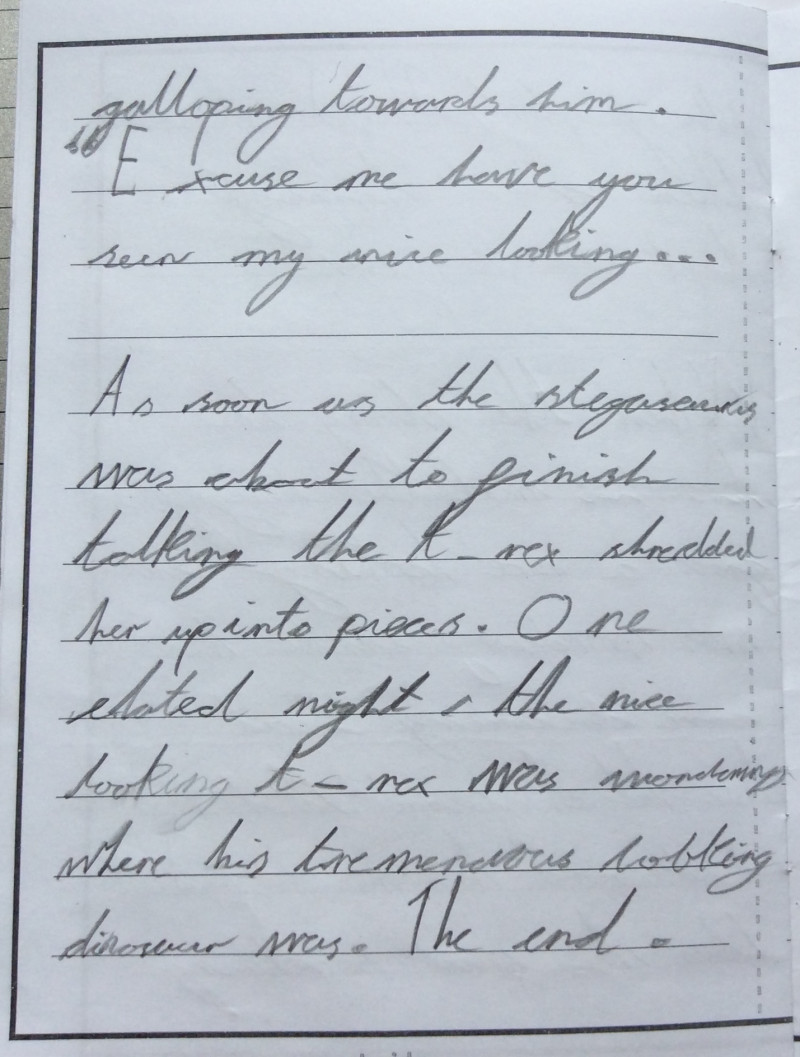 galloping towards him.
"Excuse me have you
seen my nice looking...
As soon as the stegasaurus
was about to finish
talking the t-rex shredded
her up into pieces. One
elated night, the nice
looking t-rex was wondering
where his tremendous looking
dinosaur was. The end.